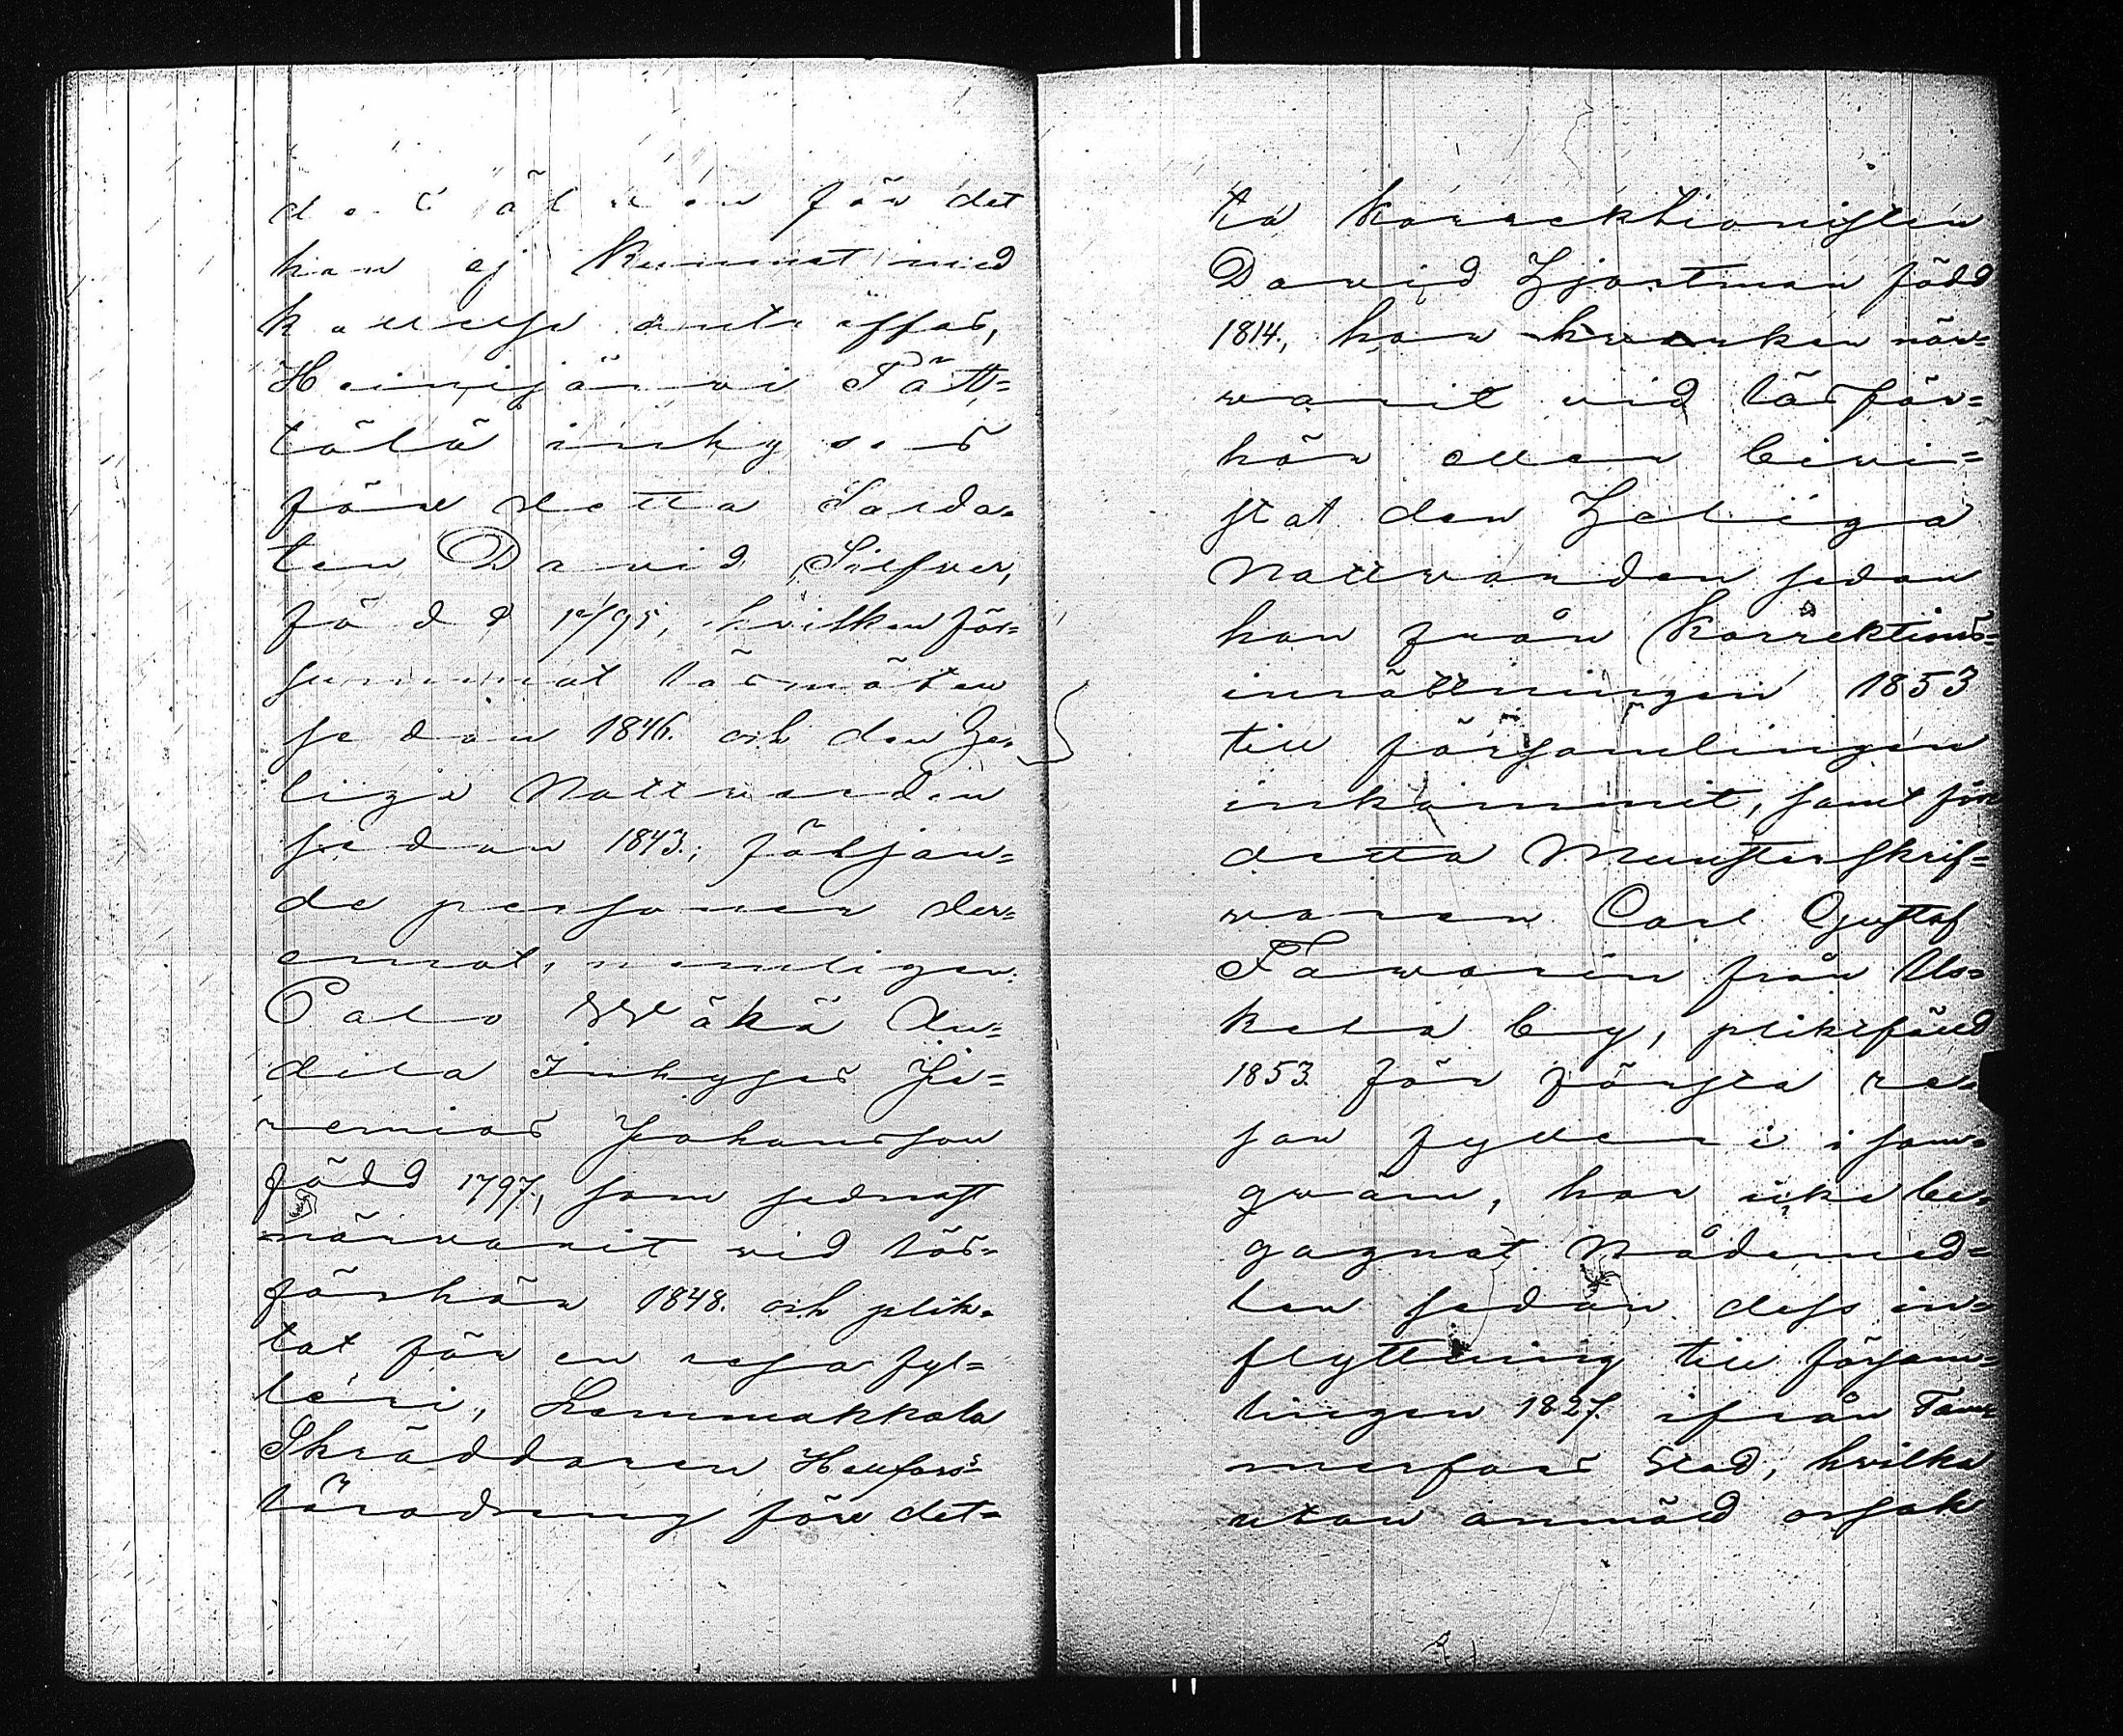 för det
han ej kunnat med
kallelse anträffas,
Heinijärvi Pått=
tälä inhyses
före detta Solda=
ten David Silfver,
född 12/95, hvilken för=
summat läsmöten
sedan 1846. och den He=
liga Nattvarden
sedan 1843.; följan=
de personer der=
emot, nemligen:
Palo Wäkä An=
dila Inhyses Je=
remias Johansson
född 1797, som sednast
närvarit vid läs=
förhör 1848. och plik=
tat för en resa fyl=
leri, Lammakkala
Skräddaren Hellfors
läradreng före det=
ta Korrektionisten
David Hjortman född
1814., har hvarken när=
varit vid läsför=
hör eller bevi=
stat den Heliga
Nattvarden sedan
han från Korrektions=
inrättningen 1853
till församlingen
inkommit, samt för
detta Munsterskrif=
varen Carl Gustaf
Favorin från Us=
kela by, pliktfälld
1853. för första re=
san fylleri i sam=
qväm, har icke be=
gagnat Nådemed=
len sedan dess in=
flyttning till försam=
lingen 1827. ifrån Tam=
merfors Stad, hvilka
utan anmäld orsak